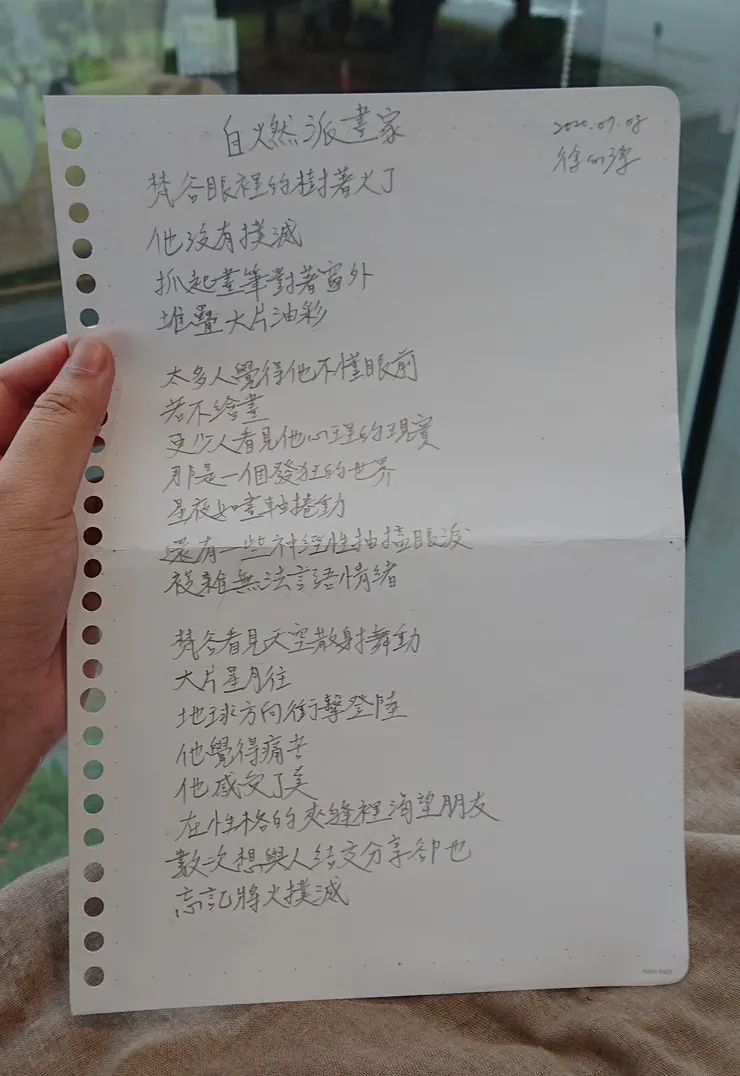 自燃派畫家
2020.09.08
徐
梵谷眼裡的樹著火了
他沒有撲滅
抓起畫筆對著窗外
堆疊大片油彩
太多人覺得他不懂眼前
若不繪畫
更少人看見他心理的現實
那是一個發狂的世界
星夜如畫軸捲動
還有一些神經性抽搐眼淚
複雜無法言語情緒
梵谷看見天空散射舞動
大片星月往
地球方向衝擊登陸
他覺得痛苦
他感受了美
在性格的夾縫裡渴望朋友
數次想與人結交分享卻也
忘記將火撲滅